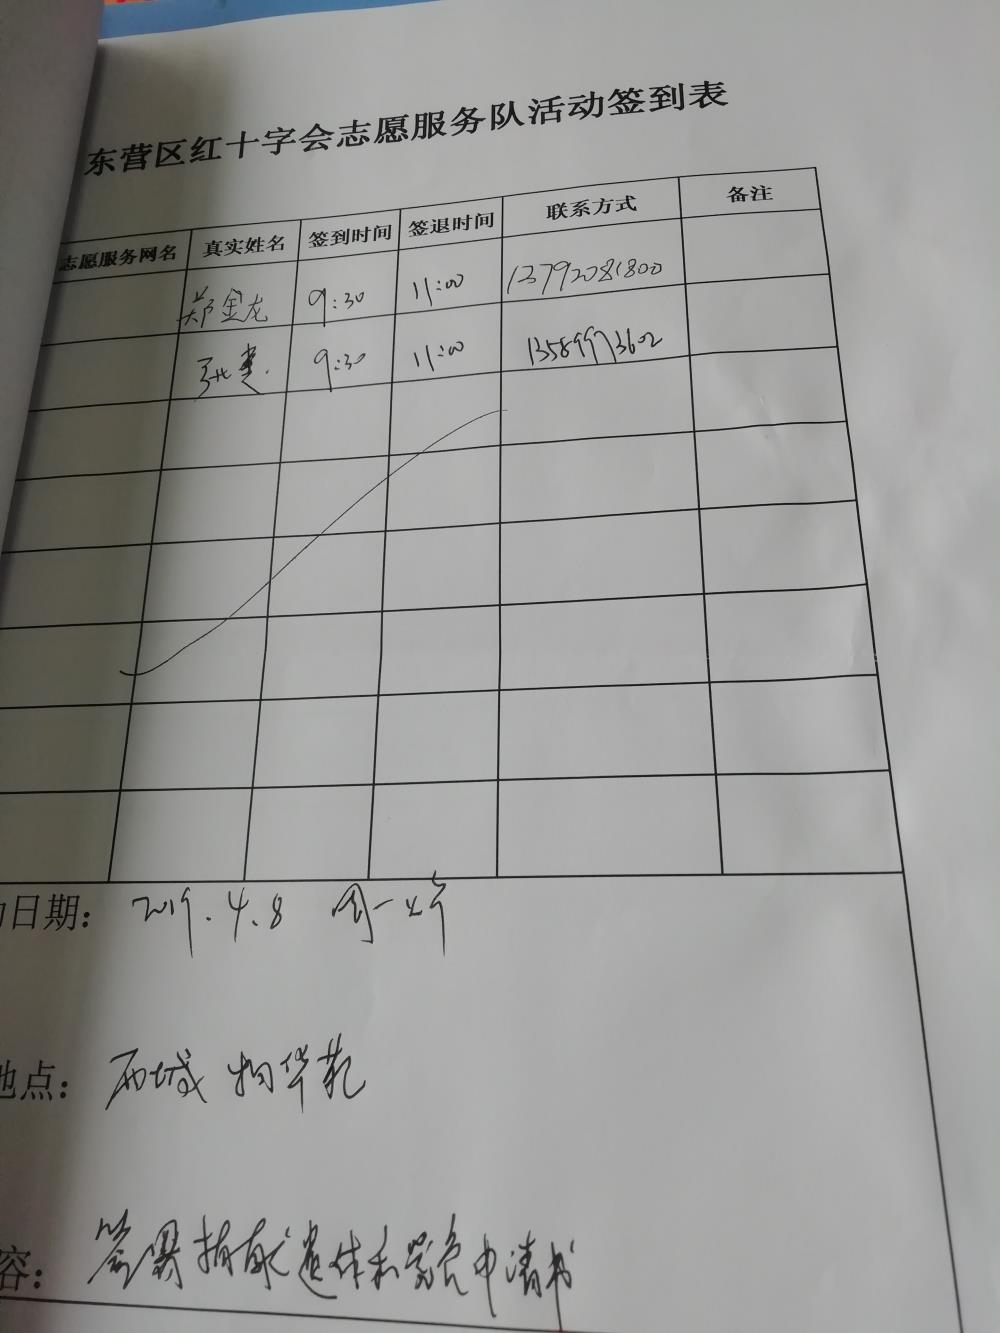 东营区红十字会志愿服务队活动签到表
志愿服务网名 真实姓名 签到时间 签退时间 联系方式 备注
郑金龙 9:30 11:00 13792081800
张建 9:30 11:00 13589973602
动日期： 2019.4.8 周一上午
地点： 西城 物华苑
容： 签署捐献遗体和器官申请书